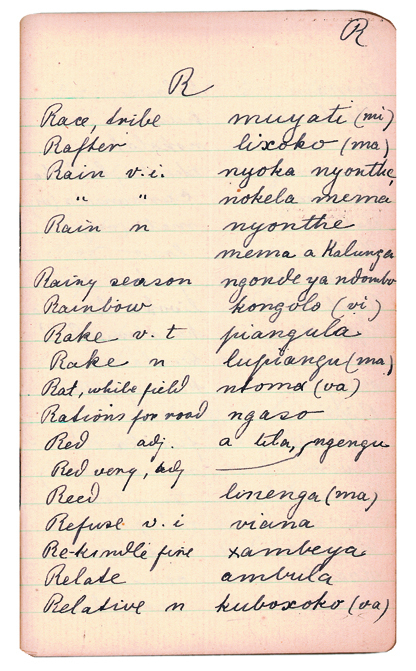 R
R
Race, tribe muyati (mi)
Rafter lixoko (ma)
Rain v.i. nyoka nyonthe
" " nokela mema
Rain n nyonthe
mema a Kalunga
Rainy season ngonde ya ndombo
Rainbow kongolo (vi)
Rake v.t piangula
Rake n lupiangu (ma)
Rat, while field ntoma (va)
Rations for road ngaso
Red adj. a tila, ngengu
Red very, adj
Reed linenga (ma)
Refuse v.i viana
Re-kindle fire xambeya
Relate ambula
Relative n kuboxoko (va)